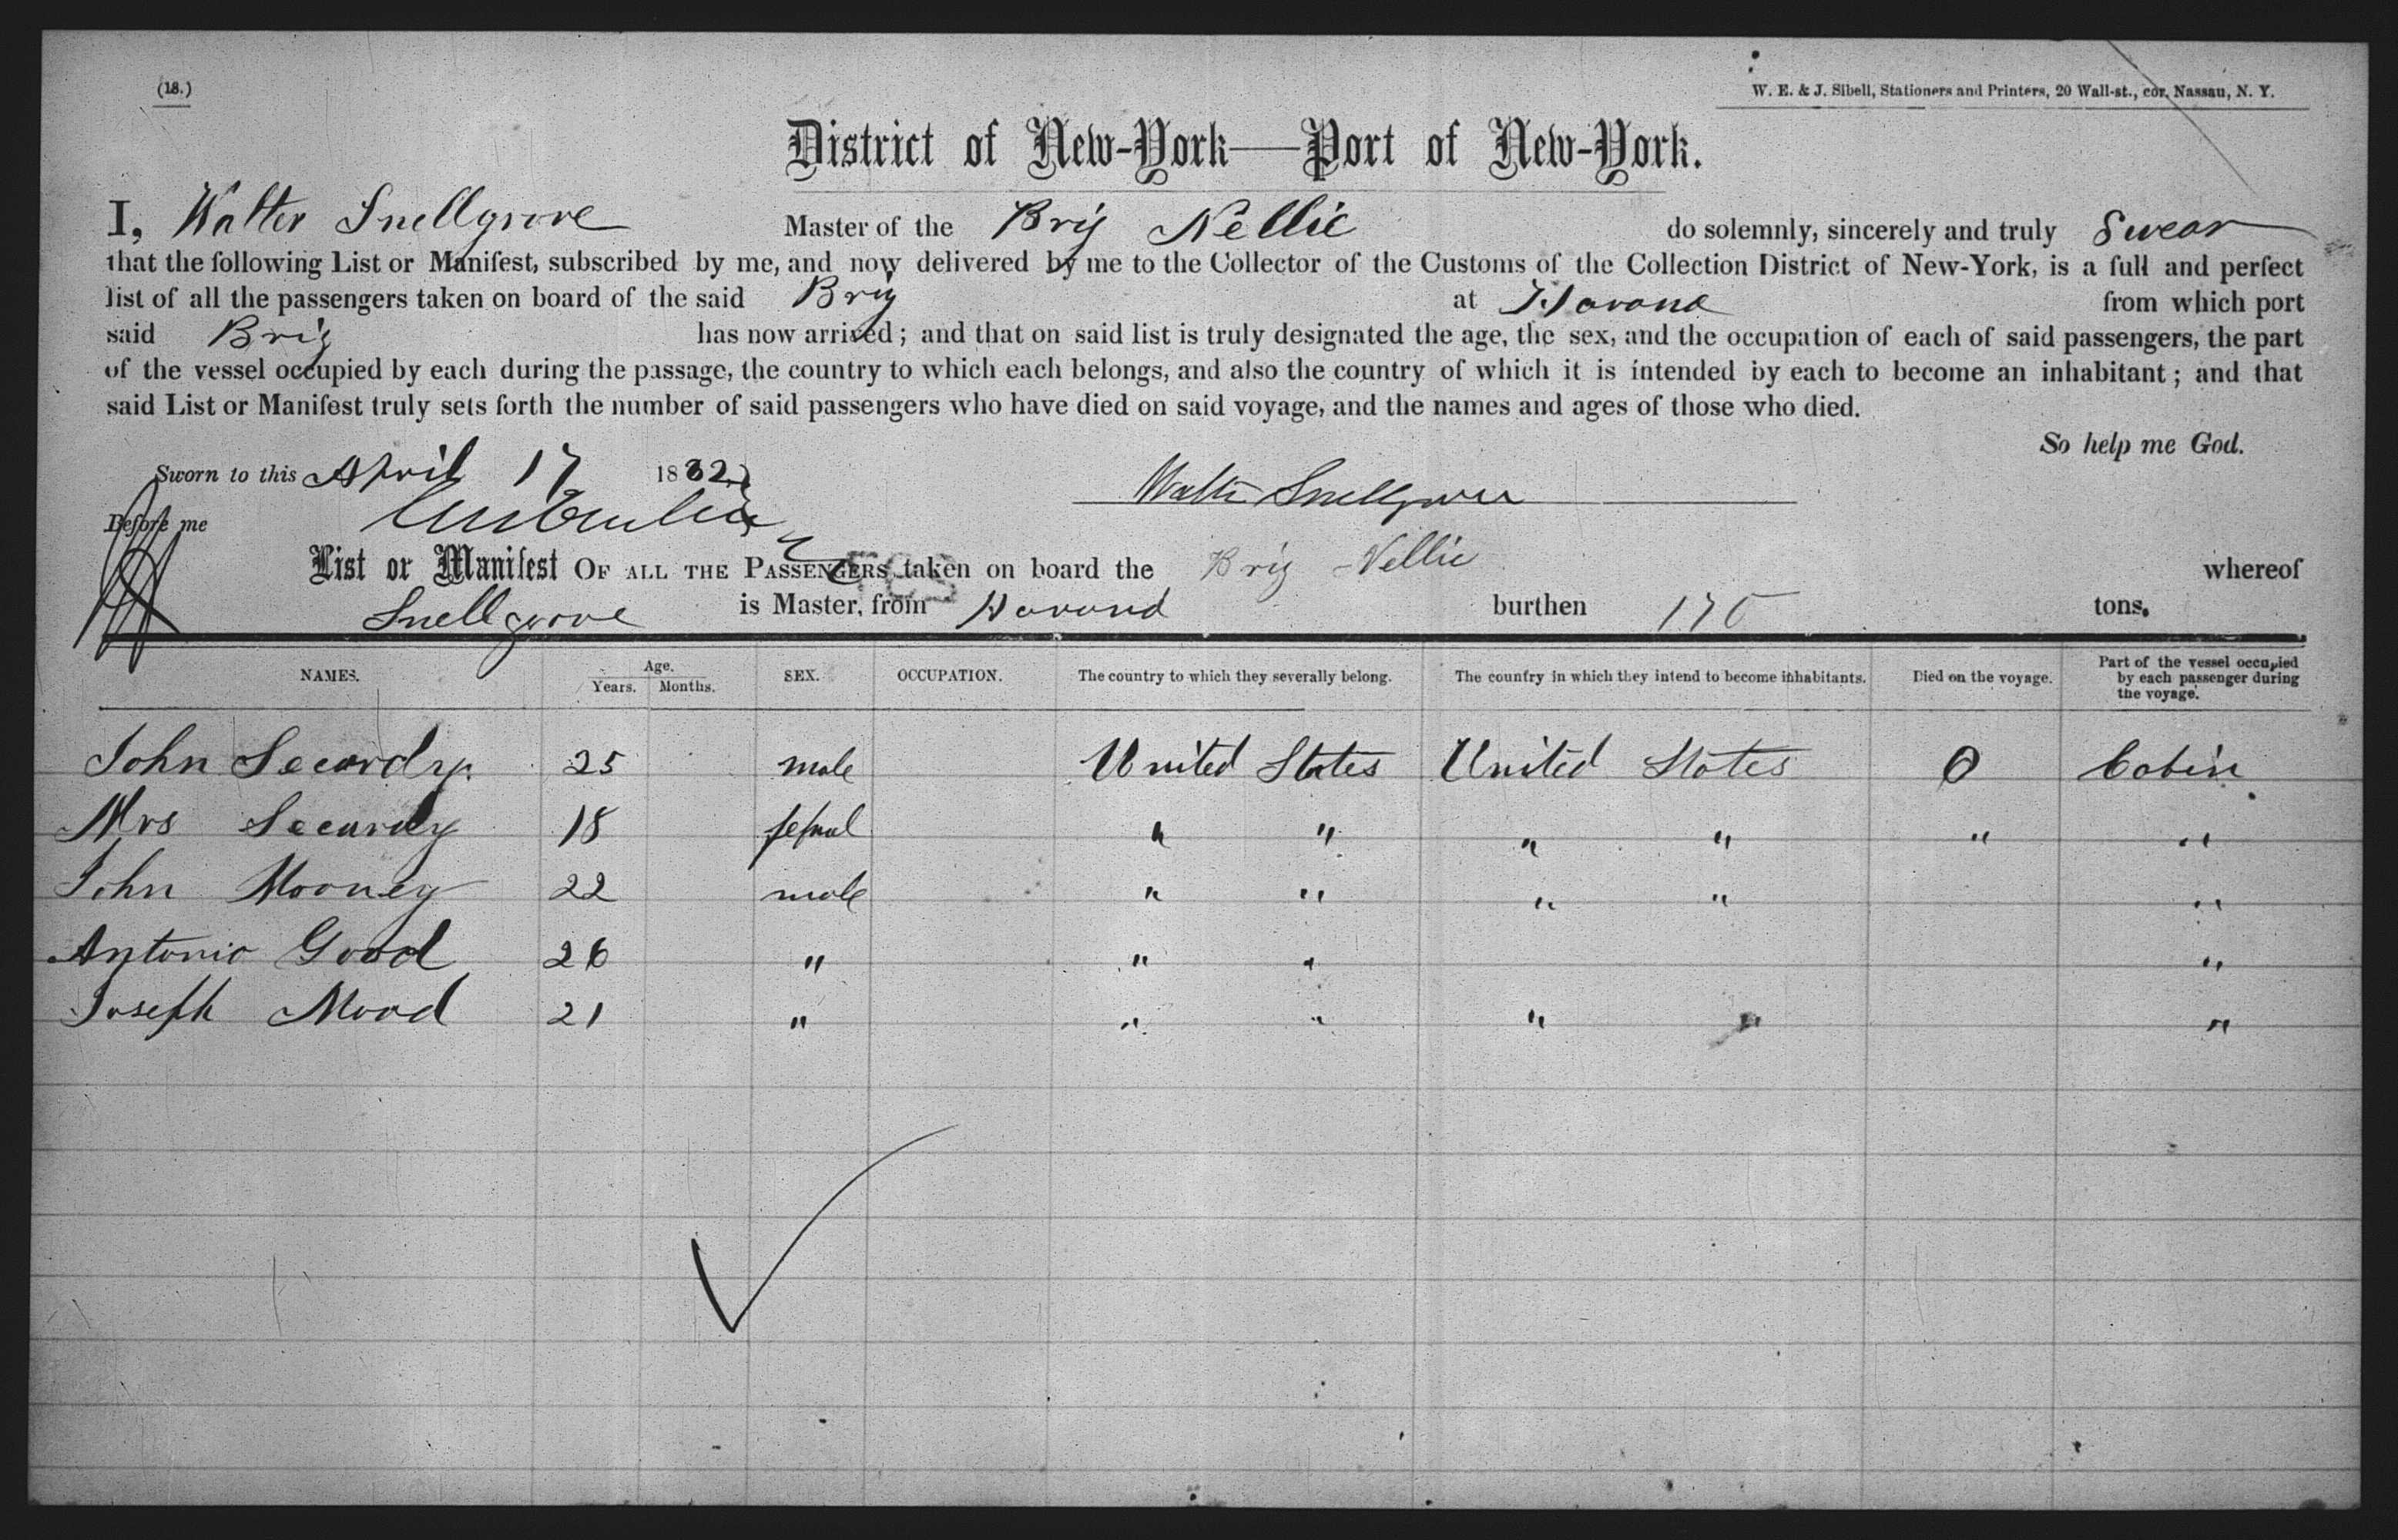 (18.)
W. E. & J. Sibell, Stationers and Printers, 20 Wall-st., cor. Nassau, N. Y.
District of New-York—Port of New-York.
I, Walter Snellgrove Master of the Brig Nellie do solemnly, sincerely and truly Swear
that the following List or Manifest, subscribed by me, and now delivered by me to the Collector of the Customs of the Collection District of New-York, is a full and perfect
list of all the passengers taken on board of the said Brig at Havana from which port
said Brig has now arrived; and that on said list is truly designated the age, the sex, and the occupation of each of said passengers, the part
of the vessel occupied by each during the passage, the country to which each belongs, and also the country of which it is intended by each to become an inhabitant; and that
said List or Manifest truly sets forth the number of said passengers who have died on said voyage, and the names and ages of those who died.
So help me God.
Sworn to this April 17 1882
Walter Snellgrove
Before me
List or Manifest OF ALL THE PASSENGERS taken on board the Brig Nellie whereof
Snellgrove is Master, from Havana burthen tons.
NAMES. Age. Years. Months. SEX. OCCUPATION. The country to which they severally belong. The country in which they intend to become inhabitants. Died on the voyage. Part of the vessel occupied by each passenger during the voyage.
John 25 male United States United States 0 Cabin
Mrs 18 " " " " " "
John Mooney 22 male " " " " "
Antonio Good 26 " " " "
Joseph Mood 21 " " " " " "